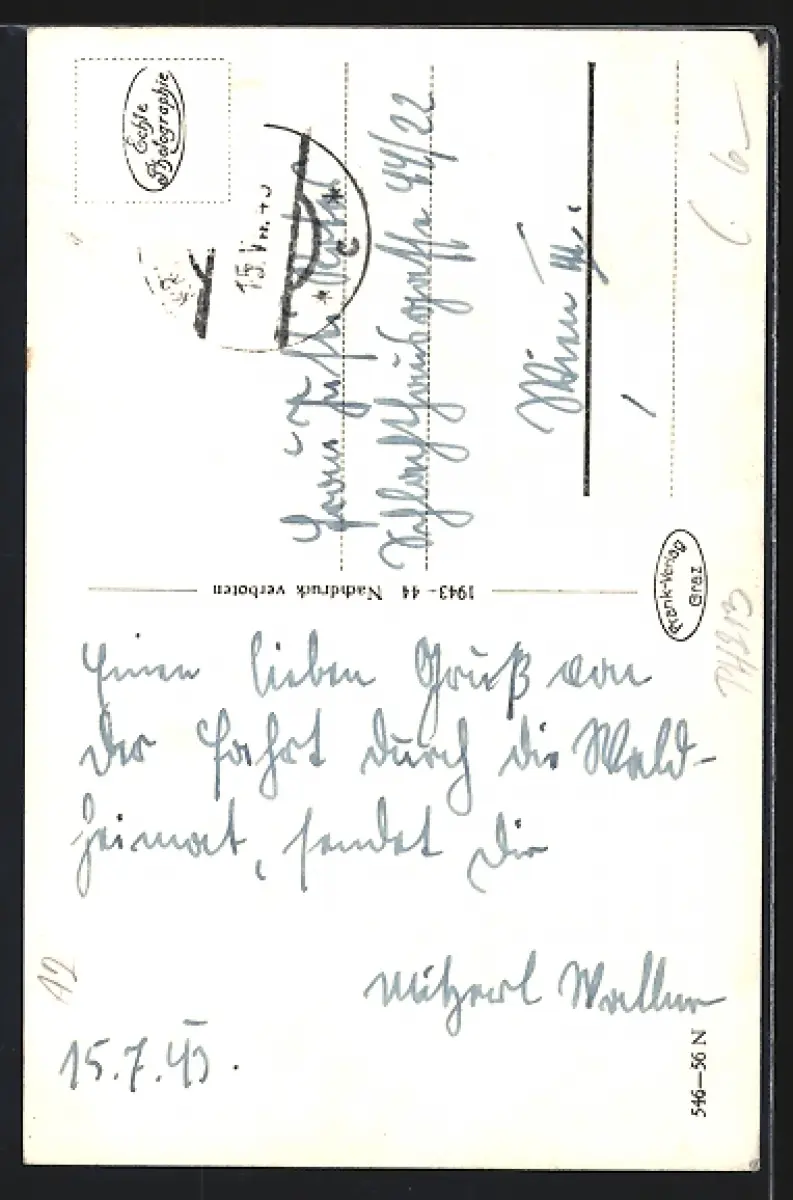 Echte
Photographie
Schlachthausgasse 44/22
Wien III.
1943-44 Nachdruck verboten
Frank-Verlag
Graz
Einen lieben Gruß von
der Fahrt durch die Wald-
heimat, sendet Dir
Mitzerl Wallner
15.7.43.
12
546—56 N